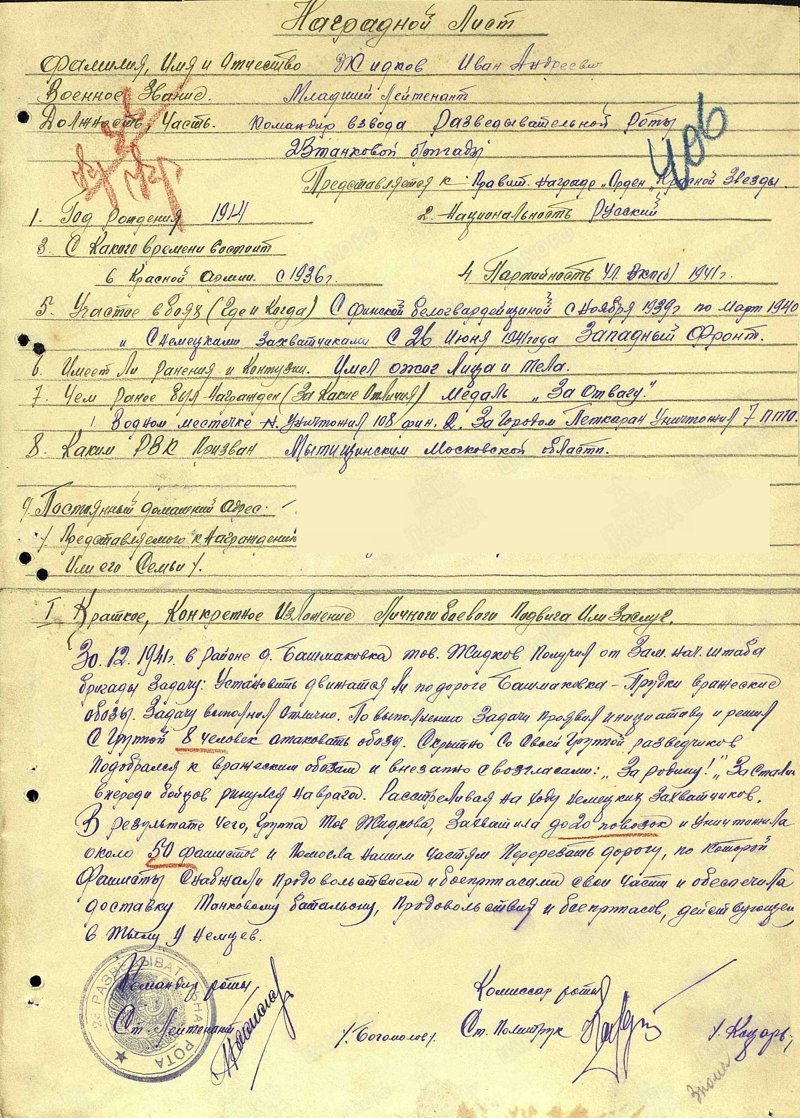 Наградной Лист
Фамилия, Имя и Отчество Жидков Иван Андреевич
Военное Звание. Младший Лейтенант
Должность, Часть. Командир взвода Разведывательной Роты
23 танковой бригады
406
Представляется к Правит. Награде „Орден „Красной Звезды.
1. Год рождения 1914 2. Национальность Русский
3. С Какого времени состоит
в Красной Армии. с 1936г. 4. Партийность Чл. ВКП(б) 1941г.
5. Участие в боях (Где и Когда) С Финской белогвардейщиной с Ноября 1939г по Март 1940
и с Немецкими Захватчиками с 26 Июня 1941 года Западный Фронт.
6. Имеет Ли ранения и Контузии. Имел ожог Лица и тела.
7. Чем ранее был Награжден (За Какие Отличия) Медаль „За Отвагу".
В одном местечке Уничтожил 108 фин. За Городом Петкаран Уничтожил 7 ПТО.
8. Каким РВК Призван Мытищинским Московской области.
9. Постоянный домашний Адрес.
/Представляемого к Награждению
Или его Семьи/.
I Краткое, Конкретное Изложение Личного боевого Подвига Или Заслуг.
30.12.1941г. в районе д. Башмаковка тов. Жидков Получил от Зам. нач. штаба
бригады Задачу: Установить движатся ли по дороге Башмаковка – Прудки вражеские
обозы. Задачу выполнил Отлично. По выполнению Задачи проявил инициативу и решил
с Группой 8 человек атаковать обозы. Скрытно Со Своей Группой разведчиков
Подобрался к вражеским обозам и внезапно с возгласами: „За родину!" За Сталина
впереди бойцов ринулся на врага. Расстреливая на ходу Немецких Захватчиков.
В результате чего, группа тов Жидкова, Захватила до 20 повозок и Уничтожила
около 50 фашистов и Помогла нашим частям Перерезать дорогу, по Которой
Фашисты Снабжали Продовольствием и боеприпасами свои Части и обеспечила
доставку Танковому батальону, Продовольствия и боеприпасов, действующем
в тылу у Немцев.
Командир роты Комиссар роты
Ст. Лейтенант /Богомолов/. Ст. Политрук /Козарь/
РАЗВЕДЫВАТЕЛЬНАЯ РОТА